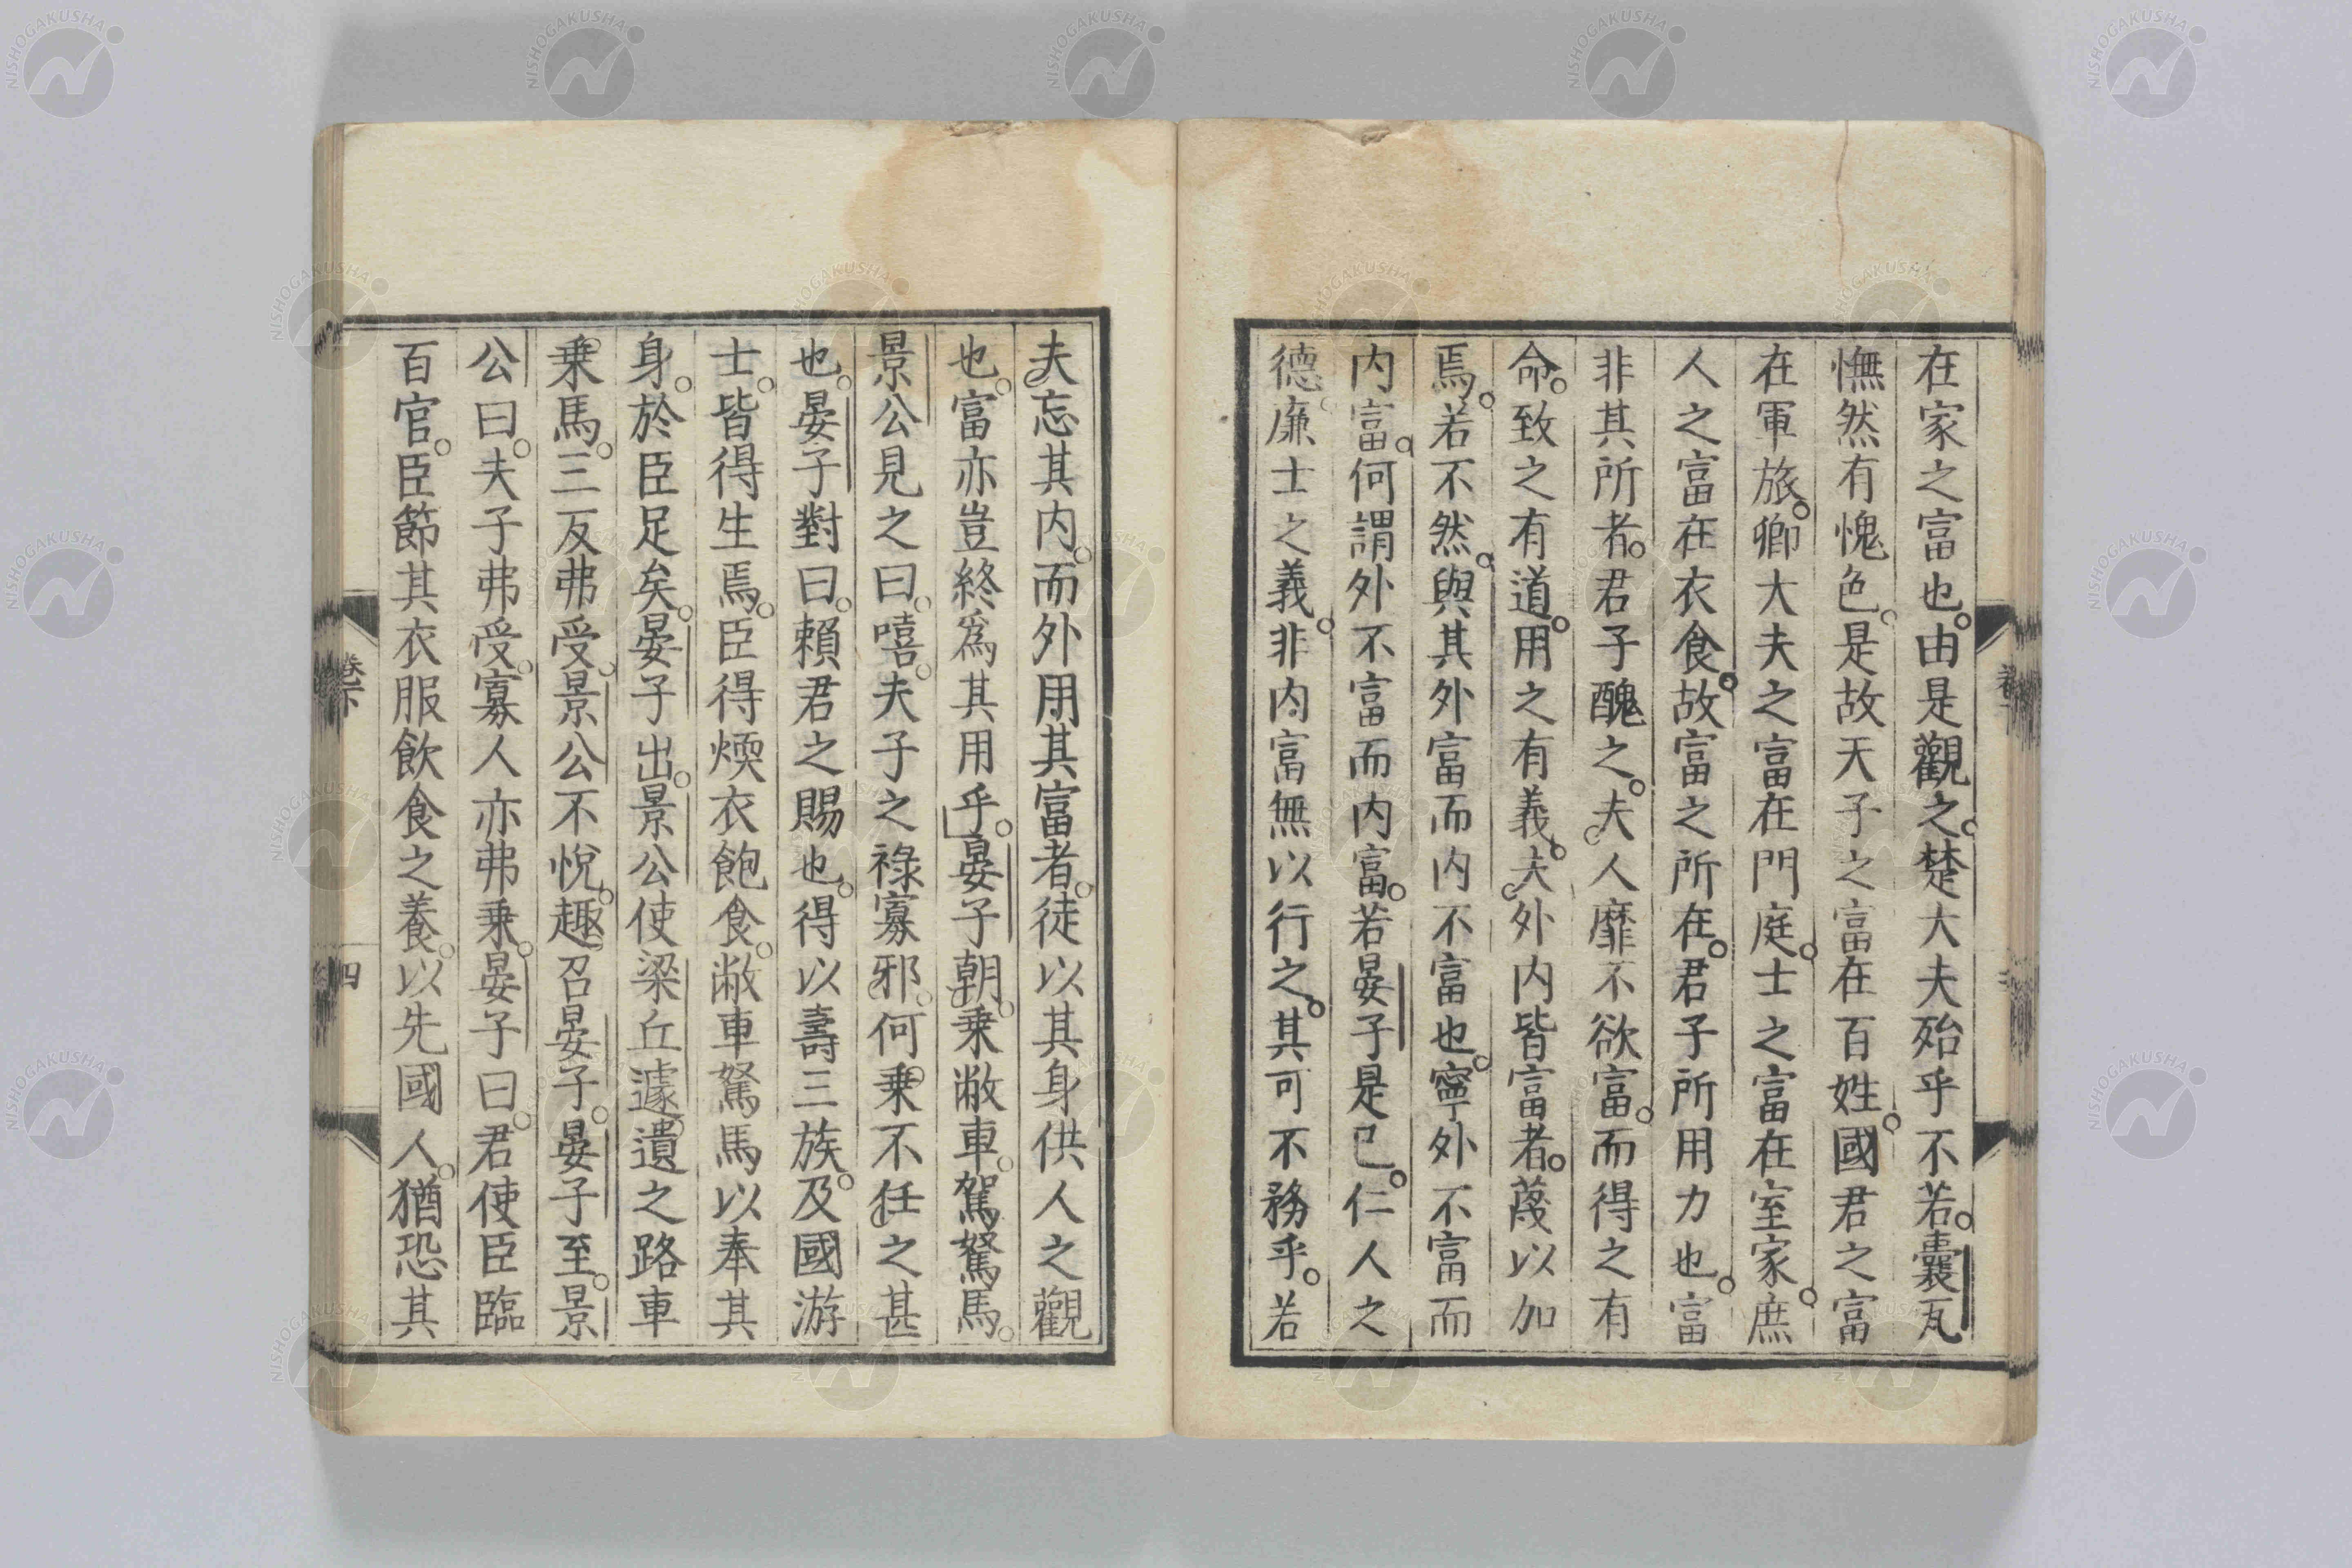 在家之富也。由是觀之。楚大夫殆乎不若。囊瓦
憮然有愧色。是故天子之富在百姓。國君之富
在軍旅。卿大夫之富在門庭。士之富在室家。庶
人之富在衣食。故富之所在。君子所用力也。富
非其所者。君子醜之。夫人靡不欲富。而得之有
命。致之有道。用之有義。夫外内皆富者。蔑以加
焉。若不然。與其外富而内不富也。寧外不富而
内富。何謂外不富而内富。若晏子是已。仁人之
德。廉士之義。非内富無以行之。其可不務乎。若
夫忘其内。而外用其富者。徒以其身供人之觀
也。富亦豈終爲其用乎。」晏子朝。乗敝車。駕駑馬。
景公見之曰。嘻。夫子之祿寡邪。何乗不任之甚
也。晏子對曰。賴君之賜也。得以壽三族。及國游
士。皆得生焉。臣得煗衣飽食。敝車駑馬以奉其
身。於臣足矣。晏子出。景公使梁丘遽遺之路車
乗馬。三反弗受。景公不悅。趣召晏子。晏子至。景
公曰。夫子弗受。寡人亦弗乗。晏子曰。君使臣臨
百官。臣節其衣服飲食之養。以先國人。猶恐其
卷下
四
NISHOGAKUSHA